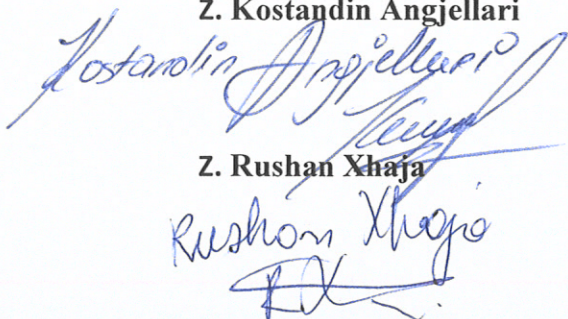 Z. Kostandin Angjellari
Kostandin Angjellari
Z. Rushan Xhaja
Rushan Xhaja